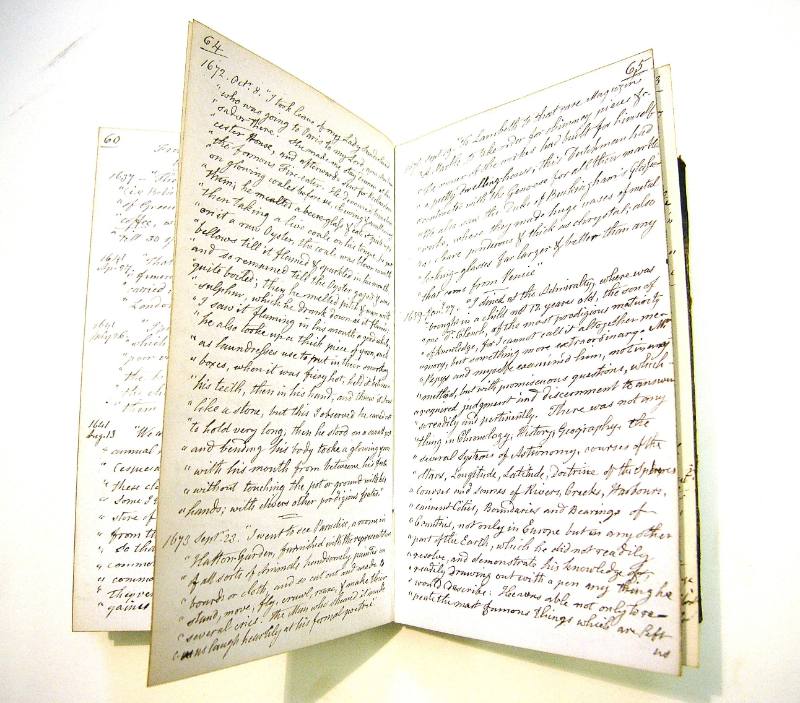 60
1637 -
till 30
1641
carried
London
1641
which
the
them
1641
"We
annual
these
Some
store of
from
So tha
commo
commo
They ve
gaines
64
1672. Oct. 8. "I took leave of my Lady Sunderland
"who was going to Paris to my Lord, now
"sador there. She made me stay dinner at
"cester House, and afterwards sent for
"the famous Fire-eater. He devoured
"on glowing coales before us, chewing and swallowing
"them; he melted a beere glasse & eat it quite up
"then taking a live coale on his tongue, he put
"on it a raw Oyster, the coale was blown with
"bellows till it flamed & sparkled in his mouth
"and so remained till the Oyster gaped & was
"quite boiled; then he melted pitch & wax with
"sulphur, which he drank down as it flamed;
"I saw it flaming in his mouth a good while;
"he also tooke up a thick piece of yron, such
"as laundresses use to put in their smoothing
"boxes, when it was fiery hot, held it between
"his teeth, then in his hand, and threw it about
"like a stone, but this I observed he cared not
"to hold very long; then he stood on a small pot
"and bending his body tooke a glowing yron
"with his mouth from betweene his feete
"without touching the pot or ground with his
"hands; with divers other prodigious feates"
1673 Sept. 23. "I went to see Paradise, a roome in
"Hatton Garden, furnished with the representations
"of all sorts of animals, handsomely painted on
"boards or cloth, and so cut out and made to
"stand, move, fly, crawl, roare, & make their
"several cries. The Man who shewed it made
"us laugh heartily at his formal poetrie
65
Sept. 19. "To Lambeth to that rare Magazine
"of Marble, to take order for chimney pieces &c
"The owner of the works had built for himself
"a pretty dwelling house; this Dutchman had
"contracted with the Genoese for all their marble
"We also saw the Duke of Buckingham's Glasse
"work, where they made huge vases of metal
"as cleare, ponderous & thick as chrystal; also
"looking-glasses far larger & better than any
"that come from Venice"
1679. Nov. 7. "I dined at the Admiralty, where was
"brought in a child not 12 years old, the son of
"one Dr Clench, of the most prodigious maturity
"of knowledge, for I cannot call it altogether me-
"mory, but something more extraordinary. Mr
"Pepys and myselfe examined him, not in any
"method, but with promiscuous questions, which
"required judgment and discernment to answer
"so readily and pertinently. There was not any
"thing in Chronology, History, Geography, the
"several Systems of Astronomy, courses of the
"Stars, Longitude, Latitude, Doctrine of the Spheres
"courses and sources of Rivers, Creeks, Harbours,
"eminent Cities, Boundaries and Bearings of
"Countries, not only in Europe but in any other
"part of the Earth, which he did not readily
"resolve, and demonstrate his knowledge of,
"readily drawing out with a pen any thing he
"would describe. He was able not only to re-
"peate the most famous things which are left
us